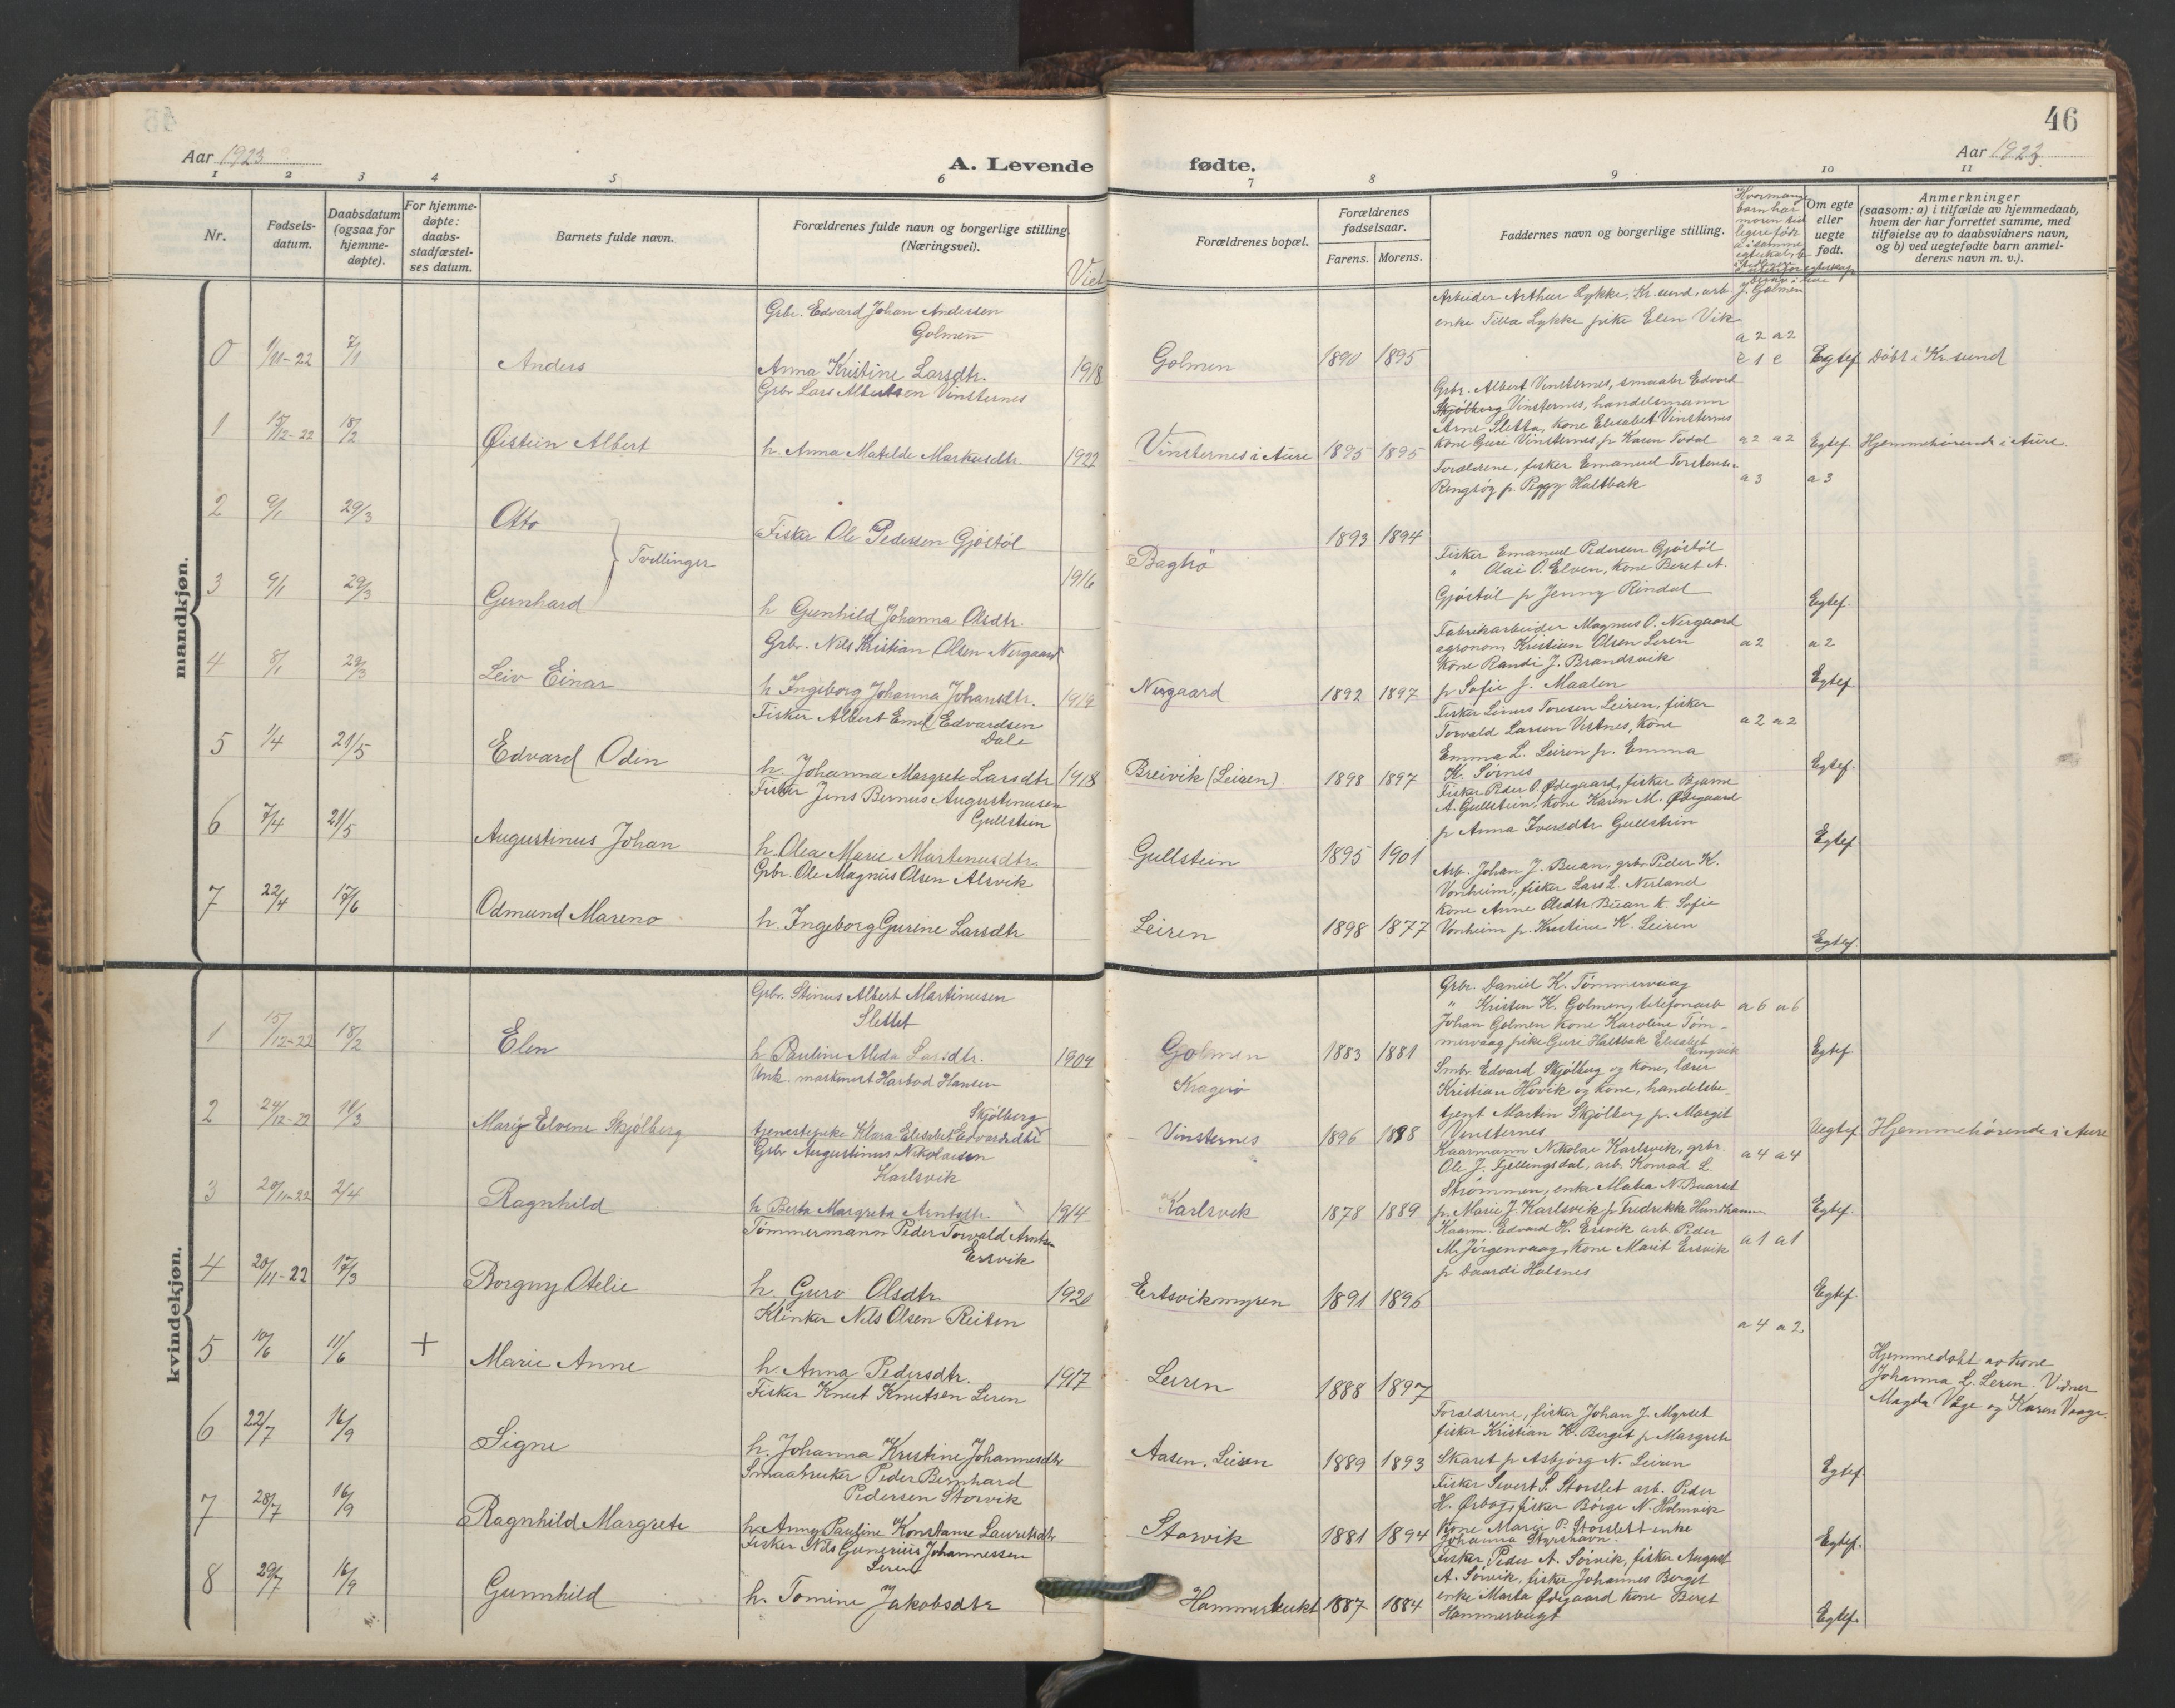 46
Aar 1923
A. Levende
fødte.
Aar 1923.
1 2 3 4 5 6 7 8 9 10 11
Nr.
Fødsels-
datum.
Daabsdatum
(ogsaa for
hjemme-
døpte).
For hjemme-
døpte:
daabs-
stadfæstel-
ses datum.
Barnets fulde navn.
Forældrenes fulde navn og borgerlige stilling.
(Næringsvei).
Viet
Forældrenes bopæl.
Forældrenes
fødselsaar.
Farens. Morens.
Faddernes navn og borgerlige stilling.
Om egte
eller
uegte
født.
Anmerkninger
(saasom: a) i tilfælde av hjemmedaab,
hvem der har forrettet samme, med
tilføielse av to daabsvidners navn,
og b) ved uegtefødte barn anmel-
derens navn m. v.).
mandkjøn.
Grbr. Edvard Johan Andersen
Golmen
0 1/11-22 7/1 Anders Anna Kristine Larsdtr. 1918 Golmen 1890 1895
Arbeider Arthur Lykke, Kr.sund, arb. J. Golmen
enke Tilla Lykke pike Elen Vik
a2 a2
e 1 e Egtef. Døbt i Kr.sund
Grbr Lars Albertsen Vinsternes
1 15/12-22 18/2 Øistein Albert h. Anna Matilde Markusdtr. 1922 Vinsternes i Aure 1895 1895
Grbr. Albert Vinsternes, smaabr Edvard
Skjølberg Vinsternes, handelsmann
Arne Sletta, kone Elisabet Vinsternes
kone Guri Vinsternes, p Karen Todal a2 a2 Egtef. Hjemmehørende i Aure.
2 9/1 29/3 Otto
Tvillinger
Fisker Ole Pedersen Gjøstøl
1893 1894
Forældrene, fisker Emanuel Torstens.
Ringsøy p. Peggy Haltbak a3 a3
3 9/1 29/3 Gernhard
h Gunhild Johanna Olsdtr. 1916 Baghø
Fisker Emanuel Pedersen Gjøstøl
" Olai O. Elven, kone Beret A.
Gjøstøl p Jenny Rindal Egtef.
Grbr. Nils Kristian Olsen Nergaard
4 8/1 29/3 Leiv Einar h Ingeborg Johanna Johansdtr. 1919 Nergaard 1892 1897
Fabrikarbeider Magnus O. Nergaard
agronom Kristian Olsen Leren a2 a2
kone Randi J. Brandsvik
p Sofie J. Maalen Egtef.
Fisker Albert Emil Edvardsen
Dale
5 1/4 21/5 Edvard Odin h. Johanna Margrete Larsdtr 1918 Breivik (Leiren). 1898 1897
Fisker Linus Toresen Leiren, fisker
Torvald Larsen Vestnes, kone a2 a2
Emma L. Leiren p. Emma
K. Sørnes Egtef.
Fisker Jens Bernus Augustinusen
Gullstein
6 7/4 21/5 Augustinus Johan h. Olea Marie Martinusdtr. Gullstein 1895 1901
Fisker Peder O. Ødegaard, fisker Bjarne
A. Gullstein, kone Karen M. Ødegaard
p Anna Iversdtr Gullstein Egtef.
Grbr. Ole Magnus Olsen Alsvik
7 22/4 17/6 Odmund Mareno h. Ingeborg Gurine Larsdtr Leiren 1898 1877
Arb. Johan J. Buan, grbr. Peder K.
Vonheim, fisker Lars L. Nerland
kone Anne Olsdtr Buan k. Sofie
Vonheim p. Kristine K. Leiren Egtef.
kvindekjøn.
Grbr. Stinus Albert Martinusen
Slettet
1 15/12-22 18/2 Elen h Pauline Alida Larsdtr. 1904 Golmen 1883 1881
Grbr. Daniel K. Tømmervaag
" Kristen K. Golmen, telefonarb a6 a6
Johan Golmen kone Karoline Tøm-
mervaag pike Guri Haltbak Elisabet
Engvik Egtef.
Unk. maskinert Harbod Hansen Kragerø
Skjølberg
2 24/12-22 18/3 Mary Elvine Skjølberg tjenestepike Klara Elisabet Edvardsdtr Vinsternes 1896 1898
Smbr. Edvard Skjølberg og kone, lærer
Kristian Hovik og kone, handelsbe-
tjent Martin Skjølberg p. Margit
Vinsternes Uegtef. Hjemmehørende i Aure
Grbr Augustinus Nikolaisen
Karlsvik
3 20/11-22 2/4 Ragnhild h Berta Margreta Arntsdtr. 1914 Karlsvik 1878 1889
Kaarmann Nikolai Karlsvik, grbr.
Ole J. Fjellingsdal, arb. Konrad L. a4 a4
Strømmen, enke Malea N. Baarset
p. Marie J. Karlsvik p Fredrikke Hundhamm Egtef.
Tømmermann Peder Torvald Arntsen
Ersvik
4 20/11-22 17/3 Borgny Otelie h. Guro Olsdtr. 1920 Ertsvikmyren 1891 1896
Kaarm. Edvard H. Ersvik arb. Peder
M. Jørgenvaag, kone Marit Ersvik a1 a1
p Daardi Halsnes Egtef.
Klinker Nils Olsen Reiten
5 10/6 11/6 + Marie Anne h. Anna Pedersdtr. 1917 Leiren 1888 1897 a4 a2
Hjemmedøbt av kone
Johanna L. Leren. Vidner
Magda Våge og Karen Vaage.
Fisker Knut Knutsen Leren
6 22/7 16/9 Signe h. Johanna Kristine Johannesdtr Aasen, Leiren 1889 1893
Forældrene, fisker Johan J. Myrset
fisker Kristian K. Berget p Margrete
Skaret p Asbjørg N. Leiren Egtef.
Smaabruker Peder Bernhard
Pedersen Storvik
7 28/7 16/9 Ragnhild Margrete h. Anny Pauline Konstanse Lauritsdtr Storvik 1881 1894
Fisker Sivert S. Storslet arb. Peder
H. Ørbog, fisker Børge N. Holmvik
kone Marie P. Storslett enke
Johanna Styrshavn. Egtef.
Fisker Nils Gunerius Johannessen
Leren
8 29/7 16/9 Gunnhild h. Tomine Jakobsdtr Hammerbukt 1887 1884
Fisker Peder A. Sørvik, fisker August
A. Sørvik, fisker Johannes Berget
enke Marta Ødegaard kone Beret
Hammerbugt Egtef.